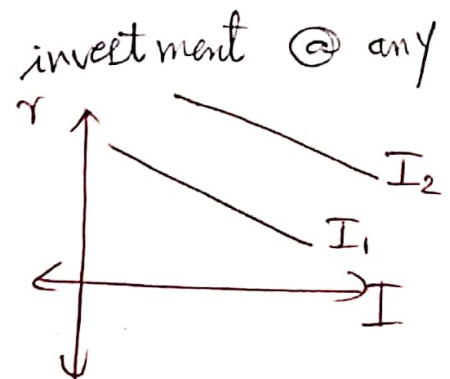 investment @ any
r
I₂
I₁
I